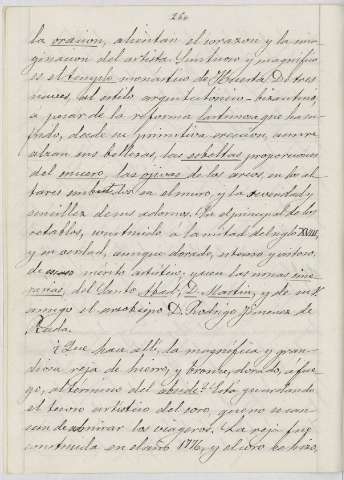 260
la oracion, alientan el corazon y la ima-
ginacion del artista. Suntuoso y magnífico
es el templo monástico de Huerta. De tres
naves, al estilo arquitectónico-bizantino,
a pesar de la reforma que ha su-
frido, desde su primitiva ereccion, aun re-
saltan sus bellezas, las esbeltas proporciones
del crucero, las ojivas de los arcos, en los al-
tares en el muro, y la severidad y
sencillez de sus adornos. En el principal de los
retablos, construido a la mitad del siglo XVIII,
y en verdad, aunque dorado,
de escaso mérito artístico, yacen las urnas cine-
rarias, del Santo Abad, D. Martin, y de su
amigo el arzobispo D. Rodrigo Jimenez de
Rada.
¿Que hace allí, la magnífica y gran-
diosa reja de hierro, y bronce, dorado, a fue-
go, al término del abside? Está guardando
el tesoro artístico del coro, que no se can-
san de admirar los viageros. La reja fue
construida en el año 1776, y el coro se hizo,